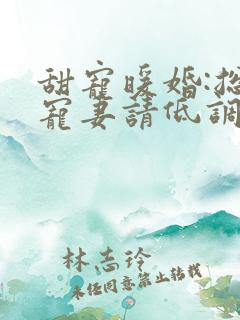 甜寵暖婚:總
寵妻請低調
林志玲
未经同意禁止转载